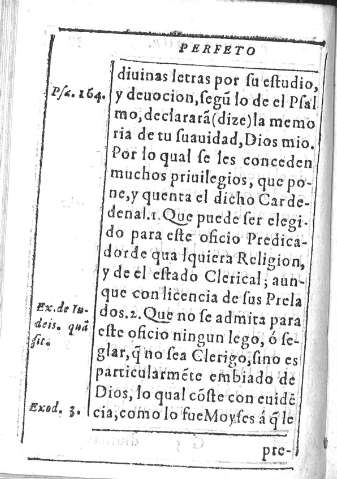 PERFETO
diuinas letras por su estudio,
Psa. 164. y deuocion, segũ lo de el Psal
mo, declarará(dize) la memo
ria de tu suauidad, Dios mio.
Por lo qual se les conceden
muchos priuilegios, que po-
ne, y quenta el dicho Carde-
denal. 1. Que puede ser elegi-
do para este oficio Predica-
dor de qua lquiera Religion,
y de el estado Clerical; aun-
que con licencia de sus Prela
Ex. de Iu- dos. 2. Que no se admita para
deis. quã este oficio ningun lego, ó se-
sit. glar, q̃ no sea Clerigo, sino es
particularmẽte embiado de
Dios, lo qual cõste con euidẽ
Exod. 3. cia, como lo fue Moyses á q̃ le
pre-